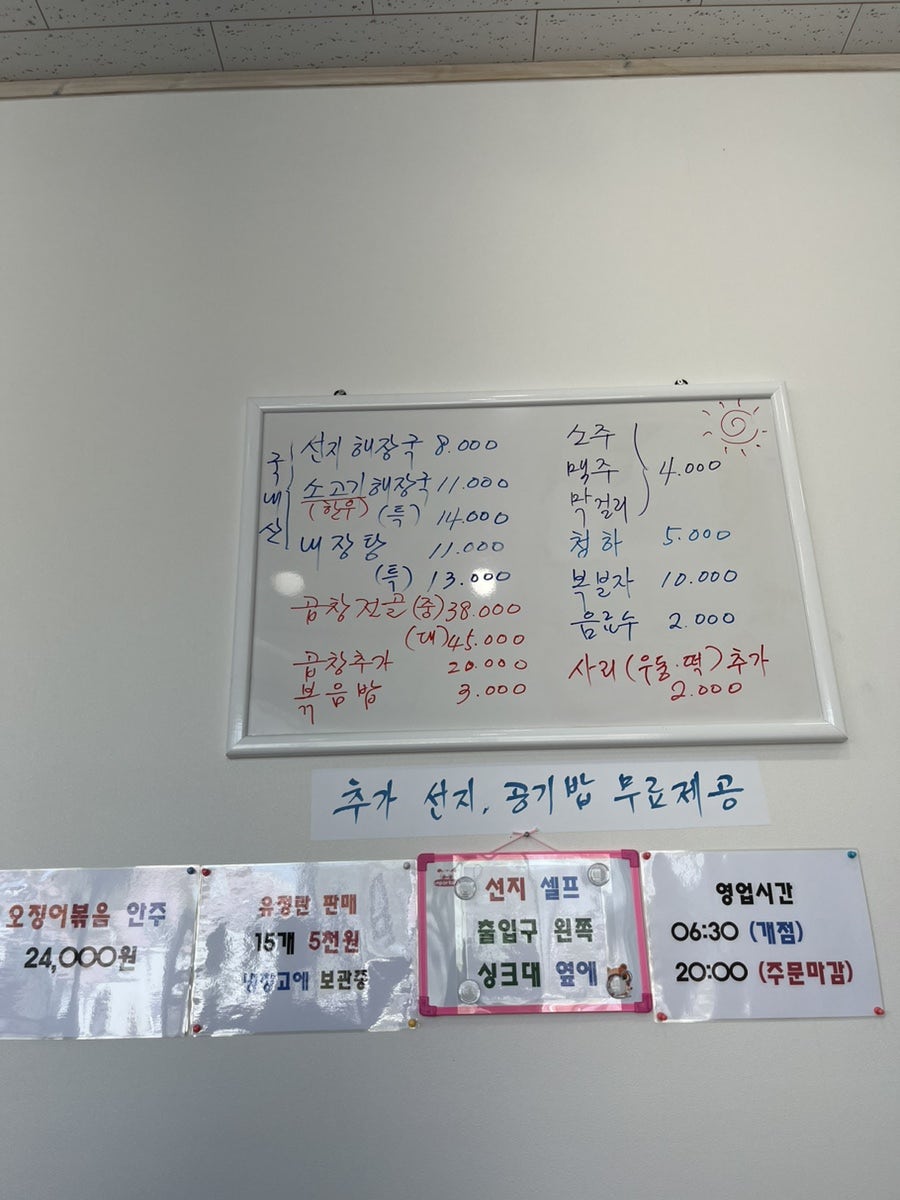 국내산
선지해장국 8.000
소고기해장국 11.000
(한우) (특) 14.000
내장탕 11.000
(특) 13.000
곱창전골 (중) 38.000
(대) 45.000
곱창추가 20.000
볶음밥 3.000
소주
맥주 4.000
막걸리
청하 5.000
복분자 10.000
음료수 2.000
사리(우동·떡)추가
2.000
추가 선지, 공기밥 무료제공
오징어볶음 안주
24,000원
유정란 판매
15개 5천원
냉장고에 보관중
선지 셀프
출입구 왼쪽
싱크대 옆애
영업시간
06:30 (개점)
20:00 (주문마감)